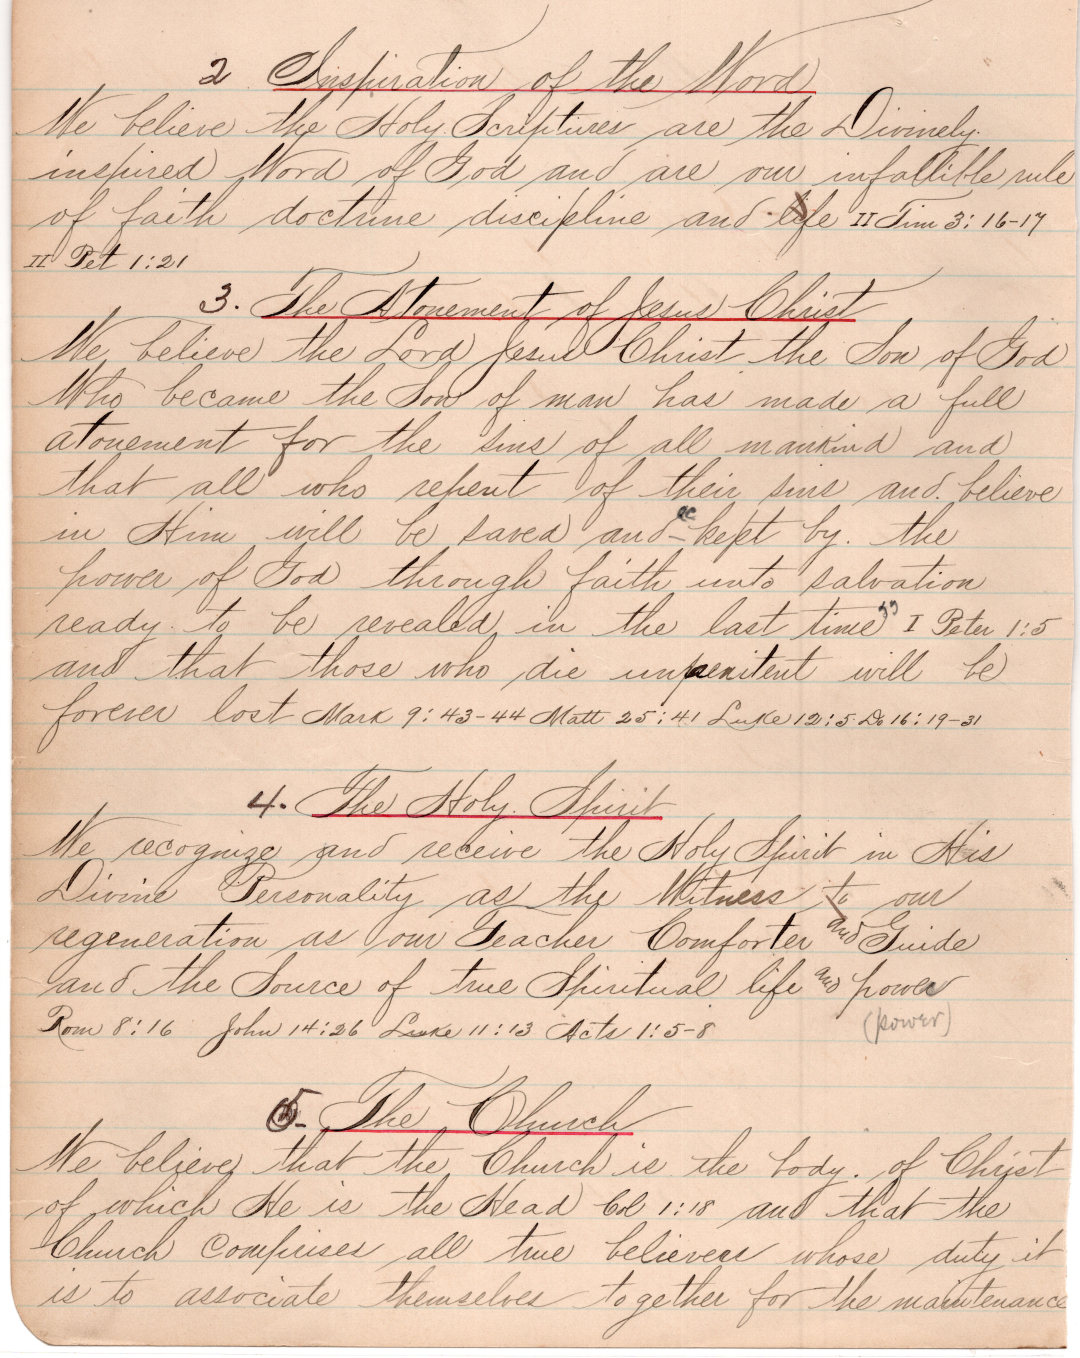 2 Inspiration of the Word
We believe the Holy Scriptures are the Divinely
inspired Word of God and are our infallible rule
of faith doctrine discipline and life II Tim 3:16-17
II Pet 1:21
3. The Atonement of Jesus Christ
We believe the Lord Jesus Christ the Son of God
Who became the Son of man has made a full
atonement for the sins of all mankind and
that all who repent of their sins and believe
in Him will be saved and "kept by the
power of God through faith unto salvation
ready to be revealed in the last time" I Peter 1:5
and that those who die unpenitent will be
forever lost Mark 9:43-44 Matt 25:41 Luke 12:5 Do 16:19-31
4. The Holy Spirit
We recognize and receive the Holy Spirit in His
Divine Personality as the Witness to our
regeneration as our Teacher Comforter and Guide
and the Source of true Spiritual life and power
(power)
Rom 8:16 John 14:26 Luke 11:13 Acts 1:5-8
5. The Church
We believe that the Church is the body of Christ
of which He is the Head Col 1:18 and that the
Church comprises all true believers whose duty it
is to associate themselves together for the maintenance